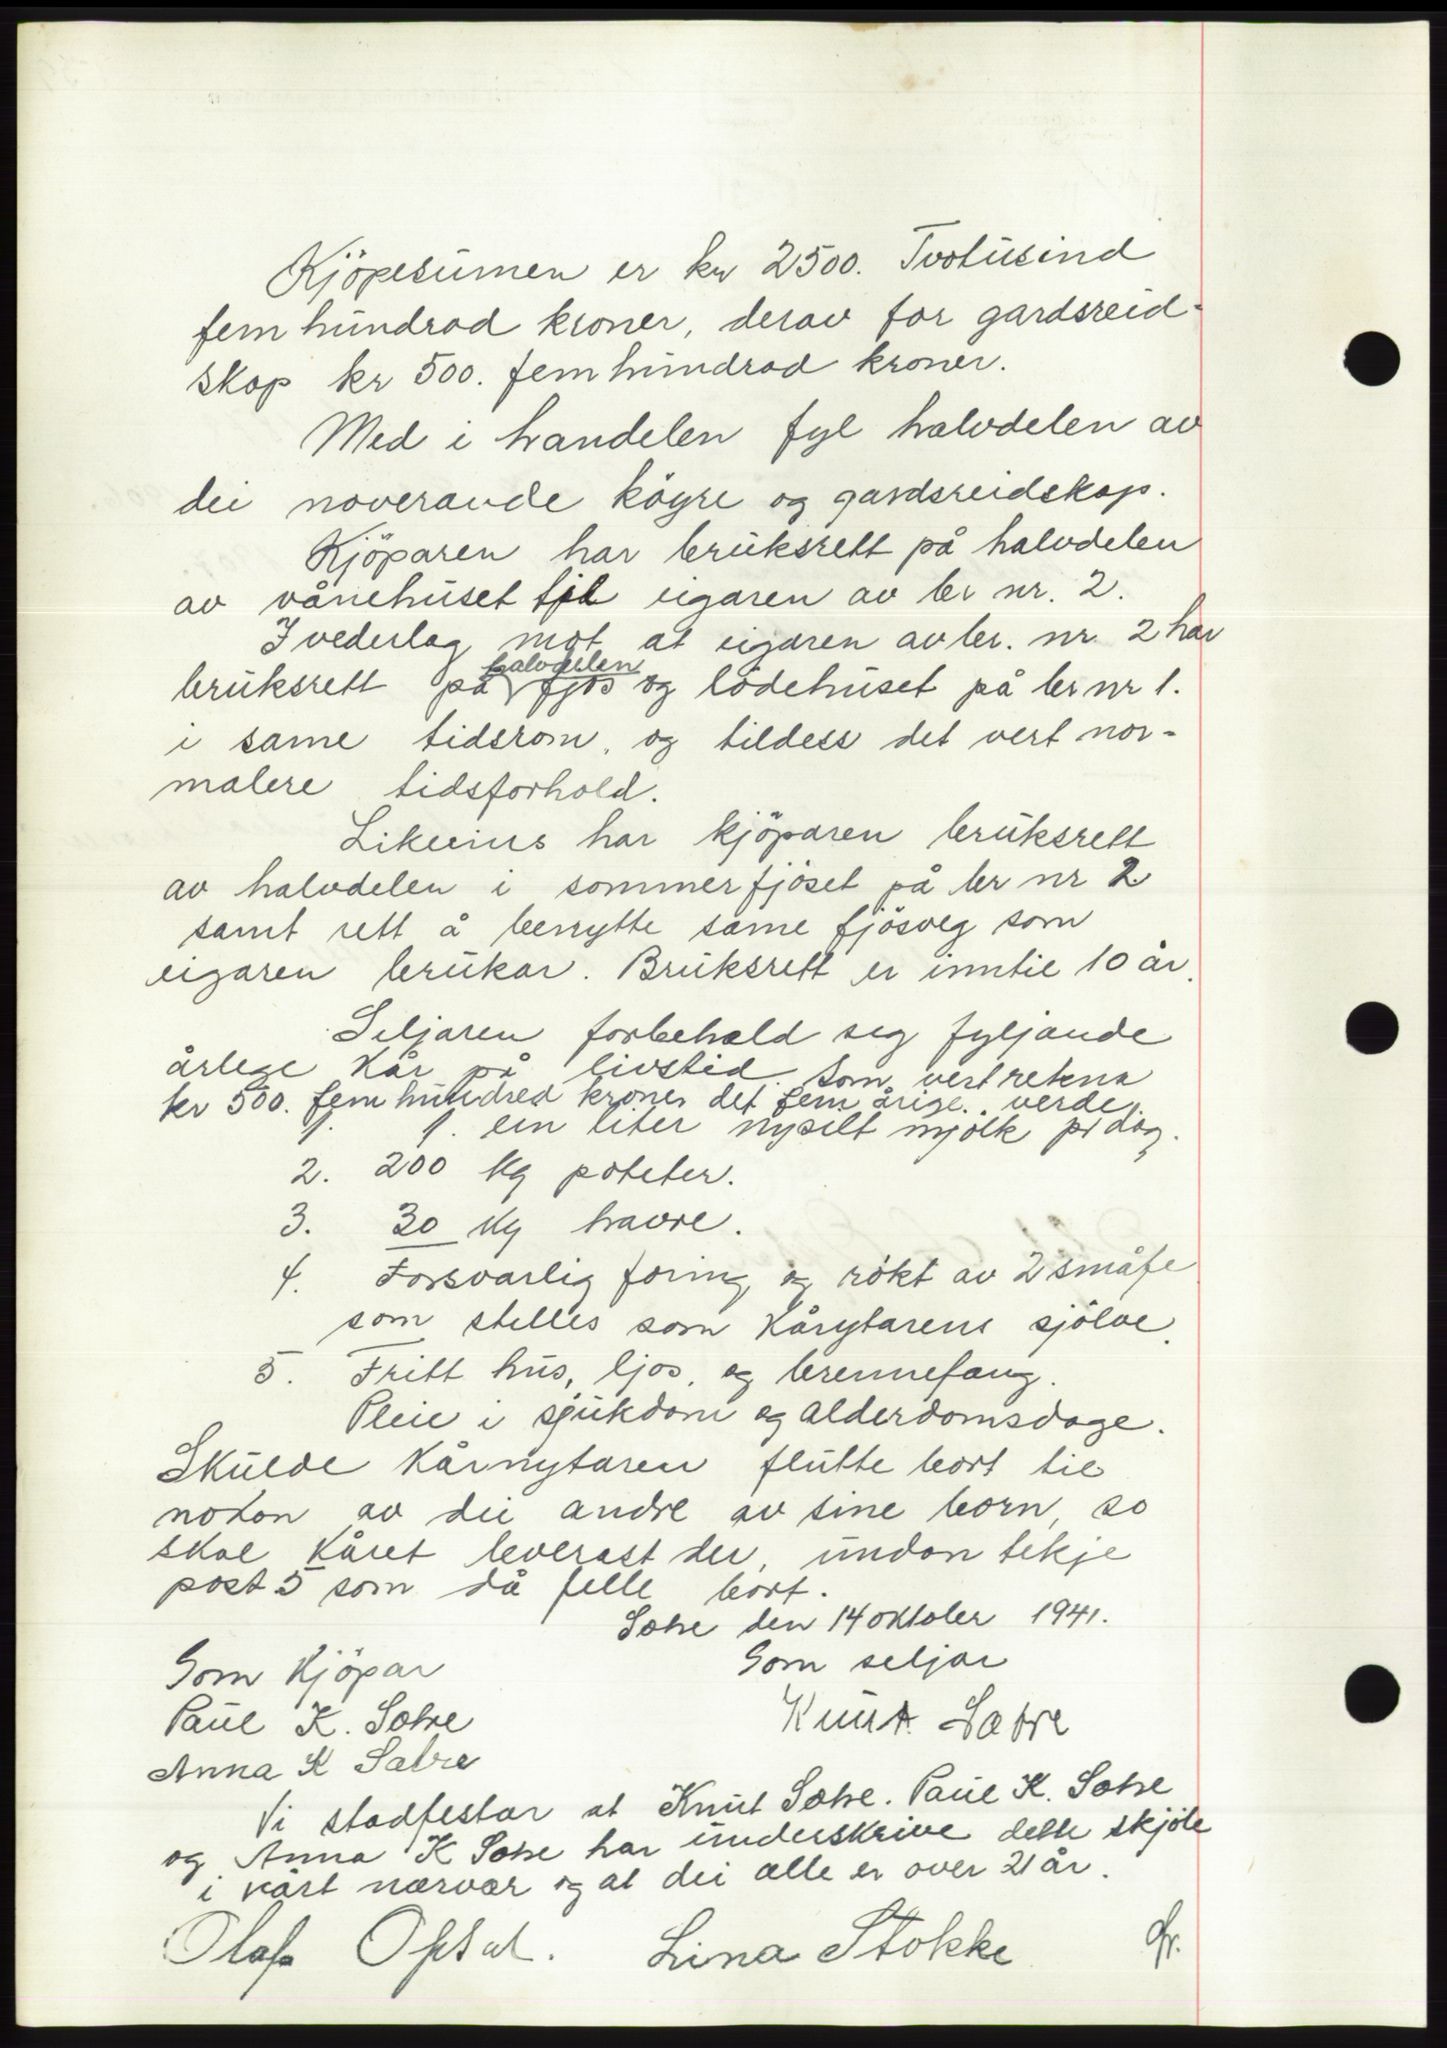 Kjöpesumen er kr 2500. Tvotusind
fem hundrad kroner, derav for gardsreid-
skap kr 500. fem hundrad kroner.
Med i handelen fyl halvdelen av
dei noverande köyre og gardsreidskap.
Kjöparen har bruksrett på halvdelen
av vånehuset til eigaren av br nr. 2.
I vederlag mot at eigaren av br. nr 2 har
halvdelen
bruksrett på fjös og lödehuset på br nr 1.
i same tidsrom, og tildess det vert nor-
malere tidsforhold.
Likeeins har kjöparen bruksrett
av halvdelen i sommerfjöset på br nr 2
samt rett å benytte same fjösveg som
eigaren brukar. Bruksrett er inntil 10 år.
Seljaren forbehald seg fyljande
årlege kår på livstid som vert rekna
kr 500. fem hundred kroner det fem årige verde.
1. 1. ein liter nysilt mjölk pr dag.
2. 200 kg poteter.
3. 30 kg havre.
4. Forsvarlig foring og rökt av 2 småfe
som stelles som kårytarens sjölve.
5. Fritt hus, ljos, og brennefang.
Pleie i sjukdom og alderdomsdage.
Skulde kårnytaren flutte bort til
nokon av dei andre av sine born, so
skal kåret leverast der, undan tekje
post 5 som då felle bort.
Sætre den 14 oktober 1941.
Som kjöpar Som seljar
Paul K. Sætre Knut Sætre
Anna K Sætre
Vi stadfestar at Knut Sætre. Paul K. Sætre
og Anna K Sætre har underskrive dette skjöte
i vårt nærvær og at dei alle er over 21 år.
Olaf Opsal. Lina Stokke